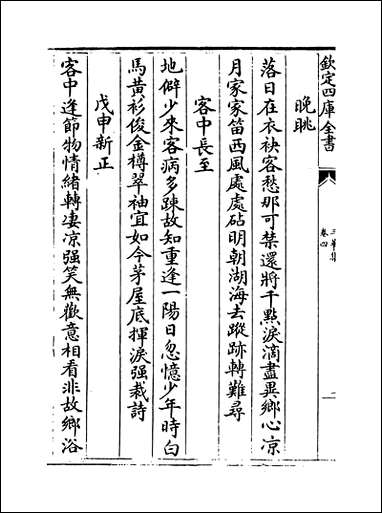 欽定四庫全書
三華集
卷四
二
晚眺
落日在衣袂客愁那可禁還將千點淚滴盡異鄉心凉
月家家笛西風處處砧明朝湖海去蹤跡轉難尋
客中長至
地僻少來客病多踈故知重逢一陽日忽憶少年時白
馬黄衫俊金樽翠袖宜如今茅屋底揮淚强裁詩
戊申新正
客中逢節物情緒轉凄凉强笑無歡意相看非故鄉浴